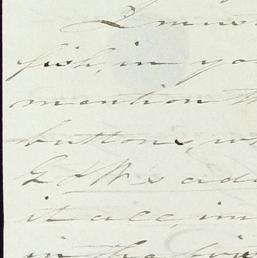 I mus
fish, in yo
mention th
buttons, wh
G & W's ad
it all, in
in the